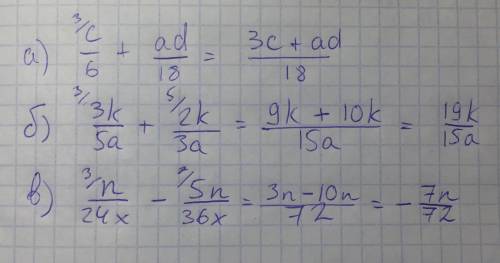 а) ³⁄c/6 + ad/18 = (3c + ad)/18
б) ³⁄3k/5a + ⁵⁄2k/3a = (9k + 10k)/15a = 19k/15a
в) ³⁄n/24x − ²⁄5n/36x = (3n − 10n)/72 = − 7n/72